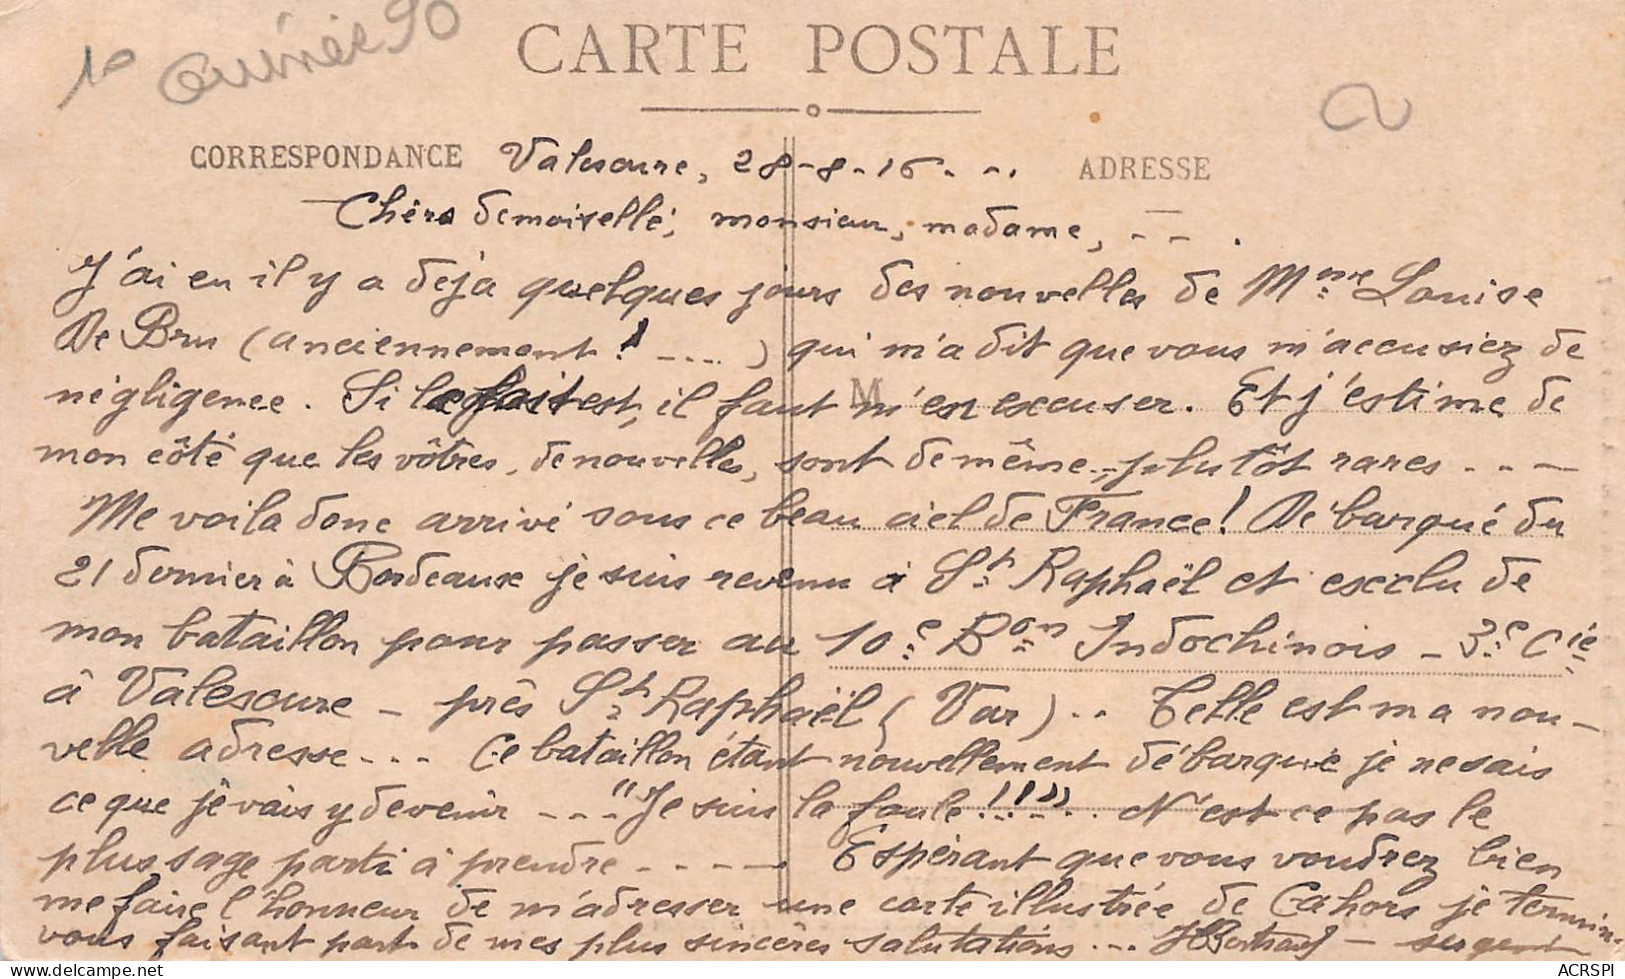 1° Guinée 90
CARTE POSTALE
CORRESPONDANCE Valescure, 28-8-16... ADRESSE
Chère demoiselle, monsieur, madame, -- .
J'ai eu il y a déjà quelques jours des nouvelles de Mme Louise
De Bru (anciennement! ....) qui m'a dit que vous m'accusiez de
négligence. Si le fait est, il faut m'en excuser. Et j'estime de
M
mon côté que les vôtres, de nouvelles, sont de même, plutôt rares ...
Me voila donc arrivé sous ce beau ciel de France! Débarqué du
21 dernier à Bordeaux je suis revenu à St Raphaël et exclu de
mon bataillon pour passer au 10e Bon Indochinois - 3e Cie
à Valescure - près St Raphaël (Var) .. Telle est ma nou-
velle adresse... Ce bataillon étant nouvellement débarqué je ne sais
ce que je vais y devenir ---"Je suis la foule!!!" .. N'est ce pas le
plus sage parti à prendre ---- Espérant que vous voudrez bien
me faire l'honneur de m'adresser une carte illustrée de Cahors je termine
vous faisant part de mes plus sincères salutations ... - sergent
ACRSPI